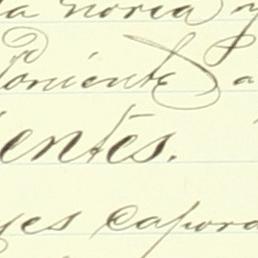 la noria y
Poniente a
entes.
yes capora